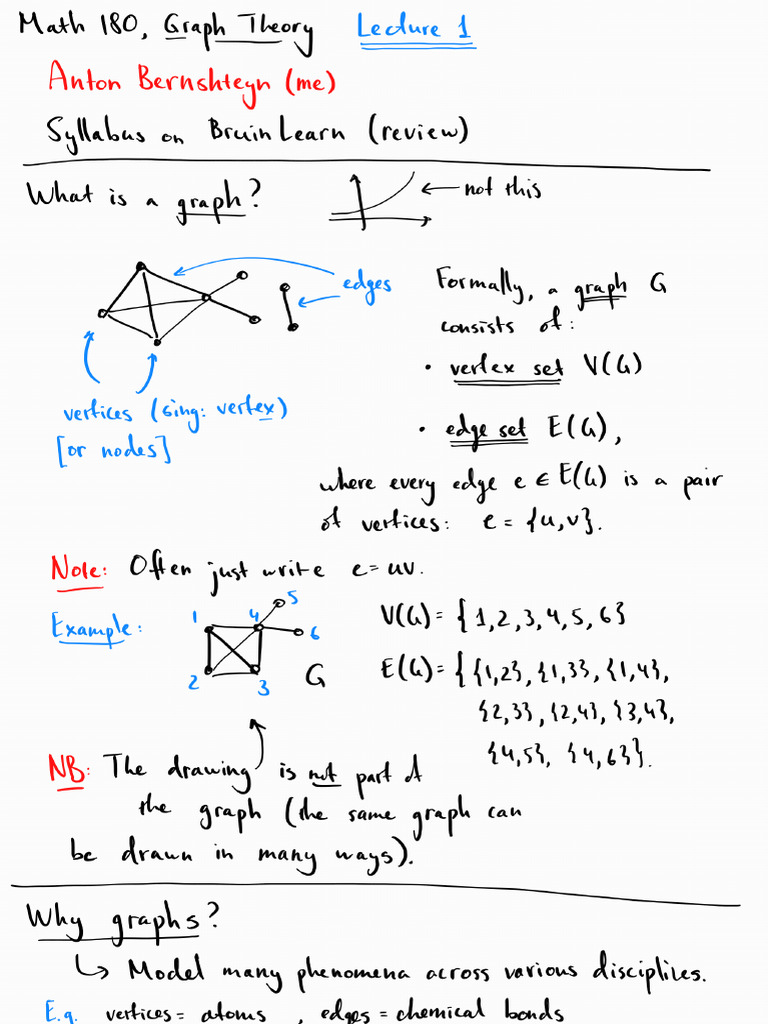 Math 180, Graph Theory Lecture 1
Anton Bernshteyn (me)
Syllabus on BruinLearn (review)
What is a graph? ← not this
edges
Formally, a graph G
consists of:
• vertex set V(G)
vertices (sing: vertex)
[or nodes]
• edge set E(G),
where every edge e ∈ E(G) is a pair
of vertices: e = {u,v}.
Note: Often just write e = uv.
Example:
1 4 5
6
2 3 G
V(G) = {1,2,3,4,5,6}
E(G) = {{1,2}, {1,3}, {1,4},
{2,3}, {2,4}, {3,4},
{4,5}, {4,6}}.
NB: The drawing is not part of
the graph (the same graph can
be drawn in many ways).
Why graphs?
↳ Model many phenomena across various disciplines.
E.g. vertices = atoms, edges = chemical bonds